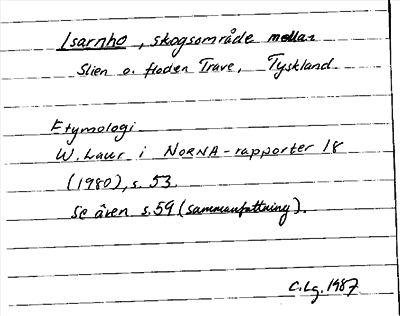 Isarnho, skogsområde mellan
Slien o. floden Trave, Tyskland.
Etymologi
W. Laur i NORNA-rapporter 18
(1980), s. 53.
Se även s. 59 (sammanfattning).
C. Lg. 1987